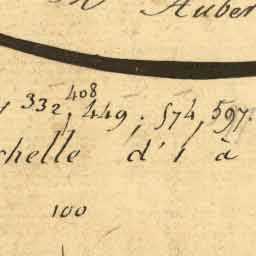 Auber
332, 408, 449; 574, 597.
chelle d'1 à
100